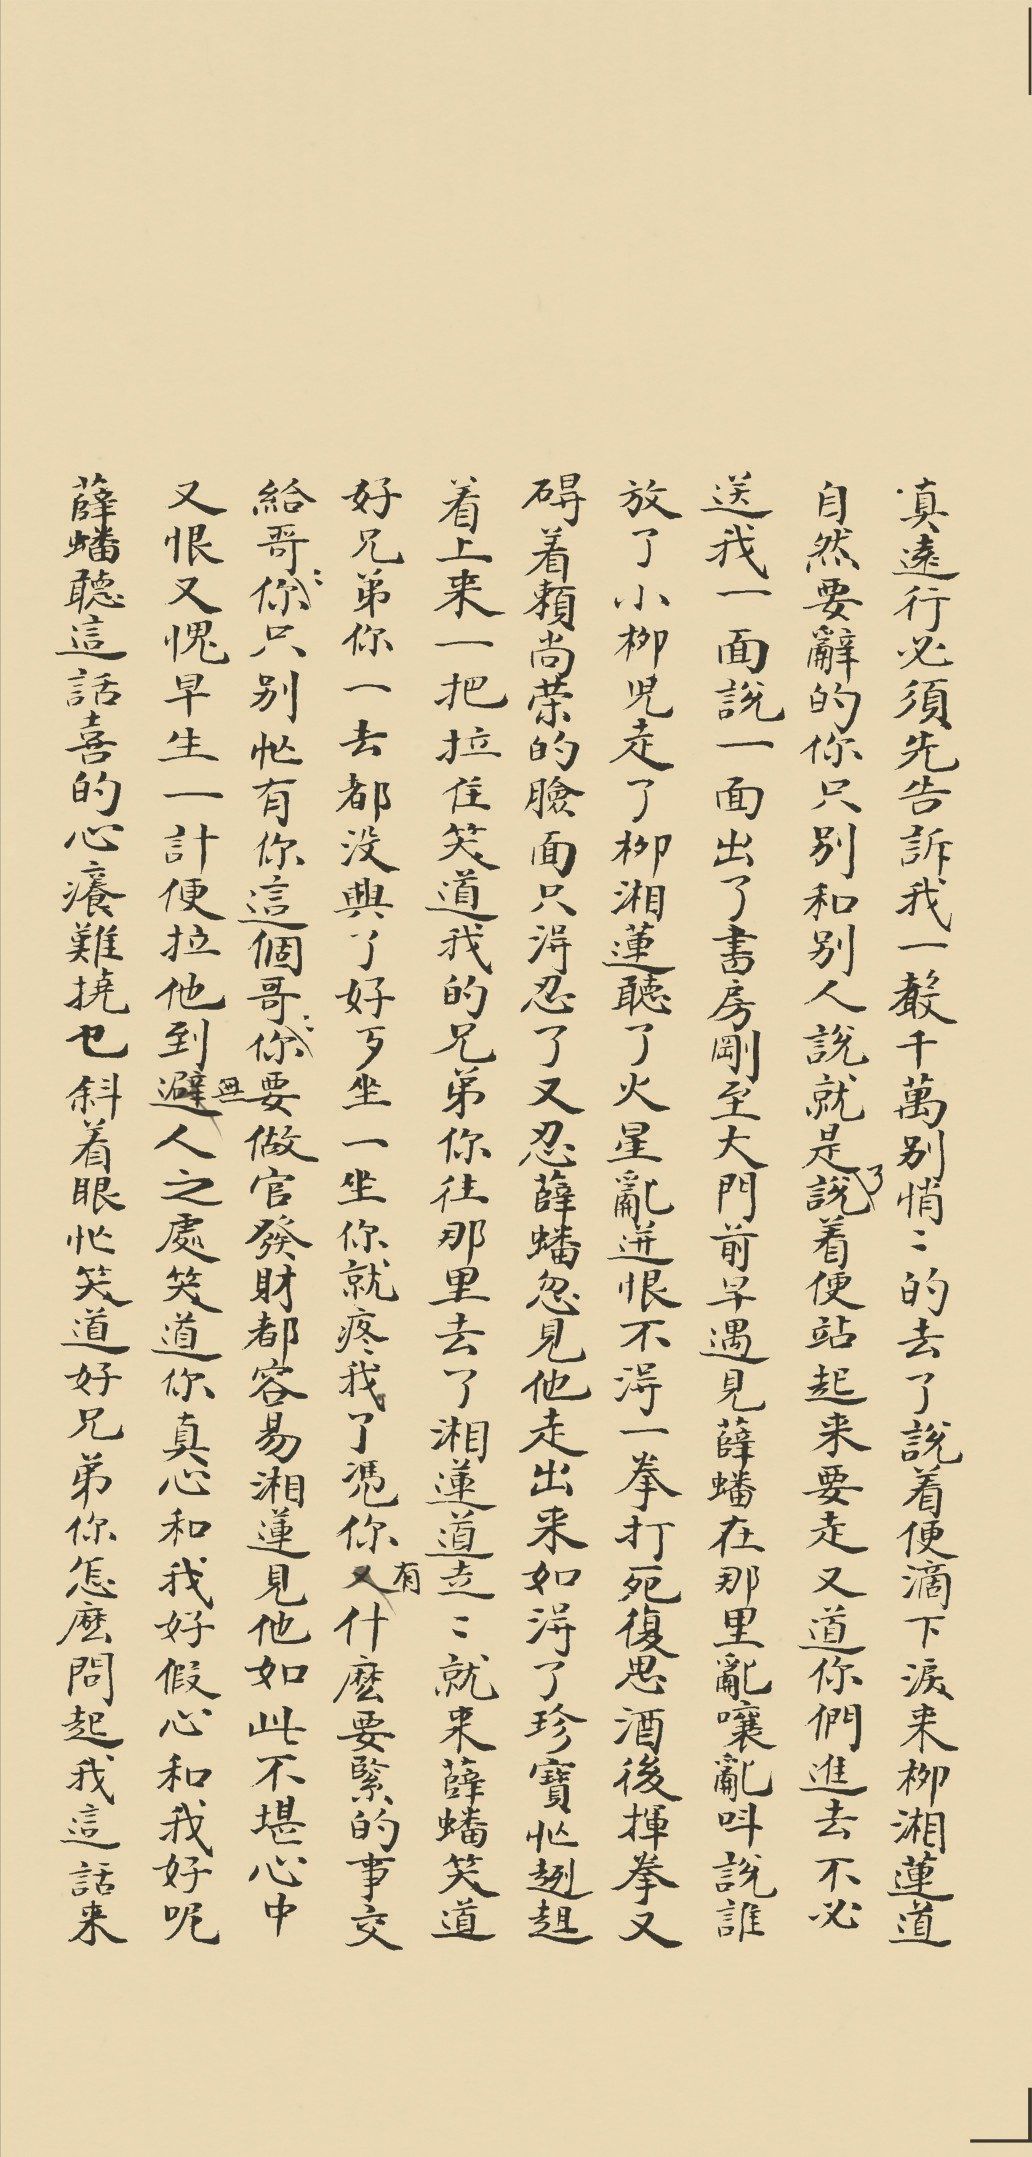 真遠行必須先告訴我一聲千萬别悄〻的去了說着便滴下淚来柳湘蓮道
自然要辭的你只别和别人說就是了說着便站起来要走又道你們進去不必
送我一面說一面出了書房剛至大門前早遇見薛蟠在那里亂嚷亂呌說誰
放了小柳児走了柳湘蓮聽了火星亂迸恨不淂一拳打死復思酒後揮拳又
碍着賴尚荣的臉面只淂忍了又忍薛蟠忽見他走出来如淂了珍寶忙趔趄
着上来一把拉住笑道我的兄弟你往那里去了湘蓮道走〻就来薛蟠笑道
好兄弟你一去都没興了好歹坐一坐你就疼我了凴你又有什麽要緊的事交
給哥〻你只别忙有你這個哥〻你要做官發財都容易湘蓮見他如此不堪心中
又恨又愧早生一計便拉他到避人之處笑道你真心和我好假心和我好呢
薛蟠聽這話喜的心癢難撓乜斜着眼忙笑道好兄弟你怎麽問起我這話来